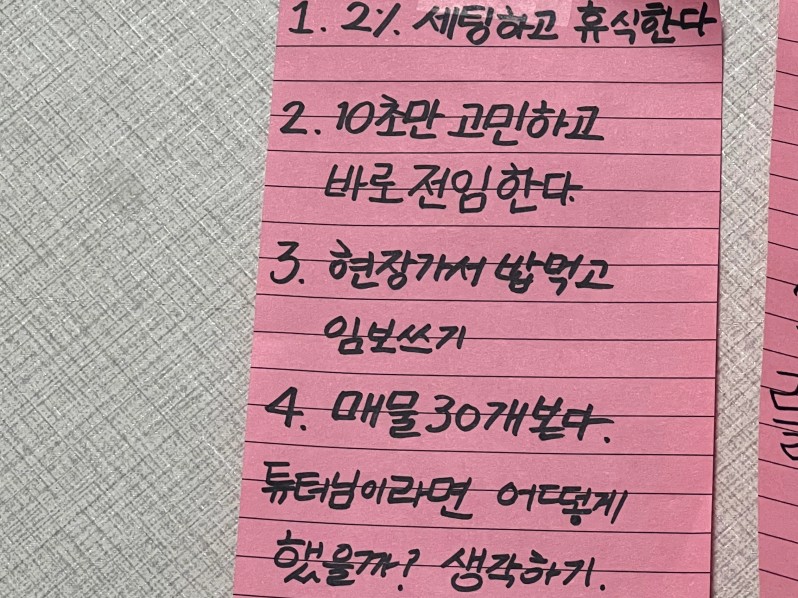 1. 2%. 세팅하고 휴식한다
2. 10초만 고민하고
바로 전임한다.
3. 현장가서 밥먹고
임보쓰기
4. 매물 30개본다.
튜터님이라면 어떻게
했을까? 생각하기.